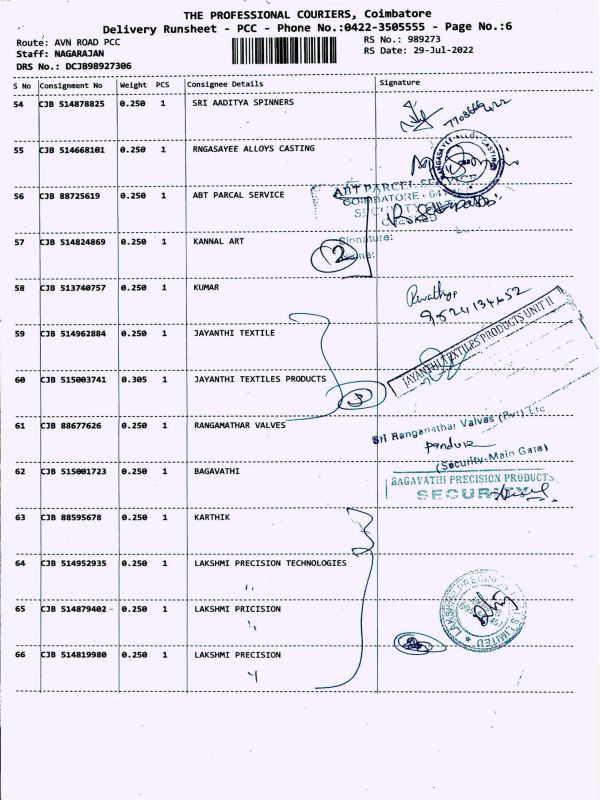 THE PROFESSIONAL COURIERS, Coimbatore
Delivery Runsheet - PCC - Phone No.:0422-3505555 - Page No.:6
Route: AVN ROAD PCC
RS No.: 989273
Staff: NAGARAJAN
RS Date: 29-Jul-2022
DRS No.: DCJB98927306
S No Consignment No Weight PCS Consignee Details Signature
54 CJB 514878825 0.250 1 SRI AADITYA SPINNERS
55 CJB 514668101 0.250 1 RNGASAYEE ALLOYS CASTING
RANGASAYEE ALLOY CASTING
56 CJB 88725619 0.250 1 ABT PARCAL SERVICE
ABT PARCEL
COIMBATORE
57 CJB 514824869 0.250 1 KANNAL ART
Signature:
2
58 CJB 513740757 0.250 1 KUMAR
Revathy
9524134652
59 CJB 514962884 0.250 1 JAYANTHI TEXTILE
JAYANTHI TEXTILES PRODUCTS UNIT II
60 CJB 515003741 0.305 1 JAYANTHI TEXTILES PRODUCTS
61 CJB 88677626 0.250 1 RANGAMATHAR VALVES
Sri Ranganathar Valves (Pvt) Ltc
(Security-Main Gate)
62 CJB 515001723 0.250 1 BAGAVATHI
BAGAVATHI PRECISION PRODUCTS
SECURITY
63 CJB 88595678 0.250 1 KARTHIK
64 CJB 514952935 0.250 1 LAKSHMI PRECISION TECHNOLOGIES
65 CJB 514879402 0.250 1 LAKSHMI PRICISION
66 CJB 514819980 0.250 1 LAKSHMI PRECISION